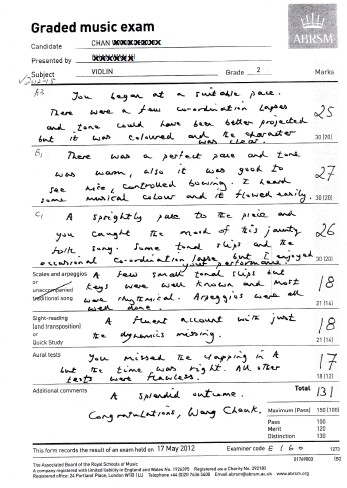 Graded music exam
ABRSM
Candidate CHAN
Presented by
Subject VIOLIN Grade 2 Marks
A3 You began at a suitable pace.
There were a few co-ordination lapses
and tone could have been better projected
but it was coloured and the character
was clear.
25
30 (20)
B1 There was a perfect pace and tone
was warm, also it was good to
see nice, controlled bowing. I heard
some musical colour and it flowed easily.
27
30 (20)
C1 A sprightly pace to the piece and
you caught the mood of this jaunty
folk song. Some tonal slips and the
occasional co-ordination lapse but I enjoyed
your performance.
26
30 (20)
Scales and arpeggios
or
unaccompanied
traditional song
A few small tonal slips but
keys were well known and most
were rhythmical. Arpeggios were all
well done.
18
21 (14)
Sight-reading
(and transposition)
or
Quick Study
A fluent account with just
the dynamics missing.
18
21 (14)
Aural tests
You missed the clapping in A
but the time was right. All other
tests were flawless.
17
18 (12)
Additional comments
A splendid outcome.
Congratulations,
Total 131
Maximum (Pass) 150 (100)
Pass 100
Merit 120
Distinction 130
This form records the result of an exam held on 17 May 2012 Examiner code E160 1273
The Associated Board of the Royal Schools of Music
A company registered with limited liability in England and Wales No. 1926395 Registered as a Charity No. 292182
Registered office: 24 Portland Place, London W1B 1LU Telephone +44 (0)20 7636 5400 Email abrsm@abrsm.ac.uk www.abrsm.org